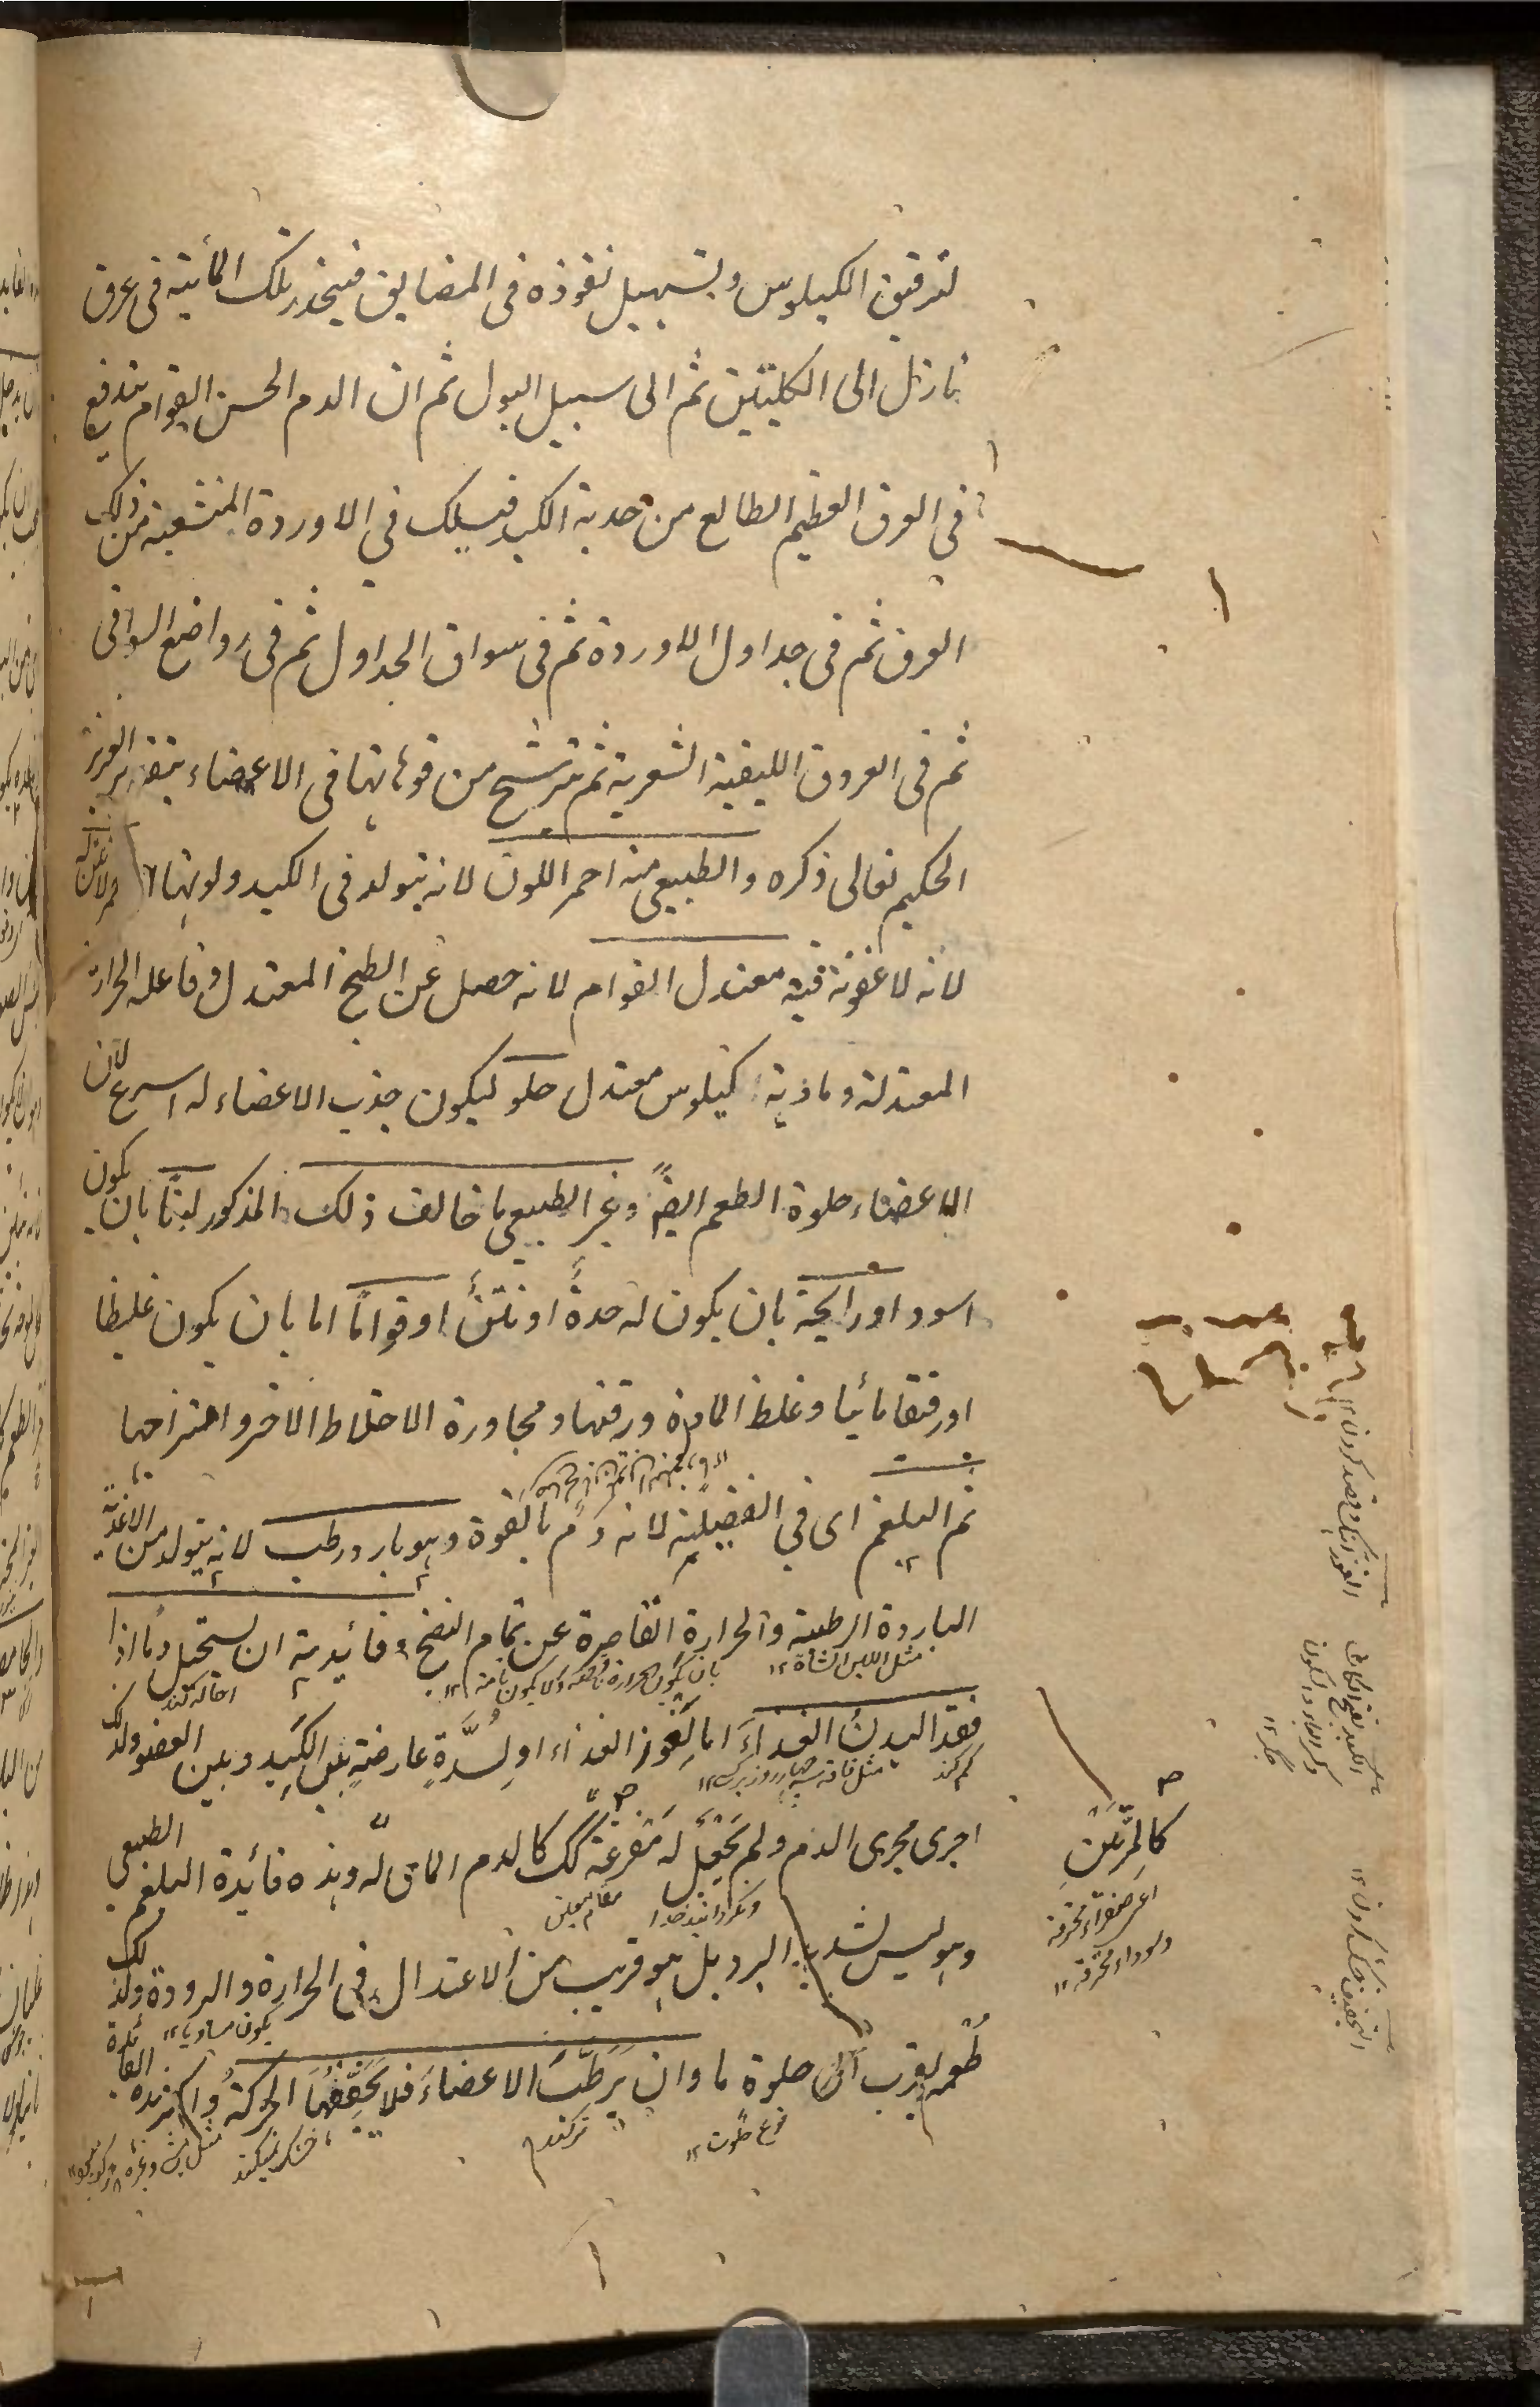 لترقيق الكيلوس وبتسهيل نفوذه فى المضايق فينحدر تلك المائية فى عرق
نازل الى الكليتين ثم الى سبيل البول ثم ان الدم الحسن القوام يندفع
فى العرق العظيم الطالع من حدبة الكبد فيسلك فى الاوردة المنشعبة من ذلك
العرق ثم فى جداول الاوردة ثم فى سواقى الجداول ثم فى رواضع السواقى
ثم فى العروق الليفية الشعرية ثم يترشح من فوهاتها فى الاعضاء بتقدير العزيز
الحكيم تعالى ذكره والطبيعى منه احمر اللون لانه يتولد فى الكبد ولونها
لانه لا عفونة فيه معتدل القوام لانه حصل عن الطبخ المعتدل وفاعله الحرارة
المعتدلة ومادته كيلوس معتدل حلو ليكون جذب الاعضاء له اسرع لان
الاعضاء حلوة الطعم ايضً وغير الطبيعى ما خالف ذلك المذكور لونًا بان يكون
اسود او رايحة بان يكون له حدةٌ او نتنٌ او قوامًا اما بان يكون غليظا
او رقيقا مائيا وغلظ المادة ورقتها ومجاورة الاخلاط الاخر وامتزاجها
ثم البلغم اى فى الفضيلة لانه دم بالقوة وهو بارد رطب لانه يتولد من الاغذية
الباردة الرطبة والحرارة القاصرة عن تمام النضج وفائدته ان يستحيل دمًا اذا
مثل اللبن الشاة ١٢
بان يكون الحرارة ناقصة ولا يكون تامة ١٢
فقد البدنُ الغذاءَ اما لِعَوز الغذاء او لسُدَّةٍ عارضةٍ بين الكَبِد وبين العضو ولذلك
كم كند
اجرى مجرى الدم ولم يُجعَل له مَفرغة كك كالدم المائى له وهذه فائدة البلغم الطبيعى
مقام معين
كالمِرّتَينِ
اعنى صفراء محترقة
وسوداء محترقة ١٢
وهو ليس بشديد البرد بل هو قريب من الاعتدال فى الحرارة والبرودة ولذلك
يكون مساويا ١٢
طُعمه يقرب الى حلوة ما وان يُرَطِّبَ الاعضاءَ فلا يُجَفِّفُهَا الحركةُ واكثر هذه الفائدة
نوع حلوت ١٢
تر كند
خشك نميكند
الكبد بفتح الكاف
وكسر الباء
جگر ١٢
التجفيف خشك كردن ١٢